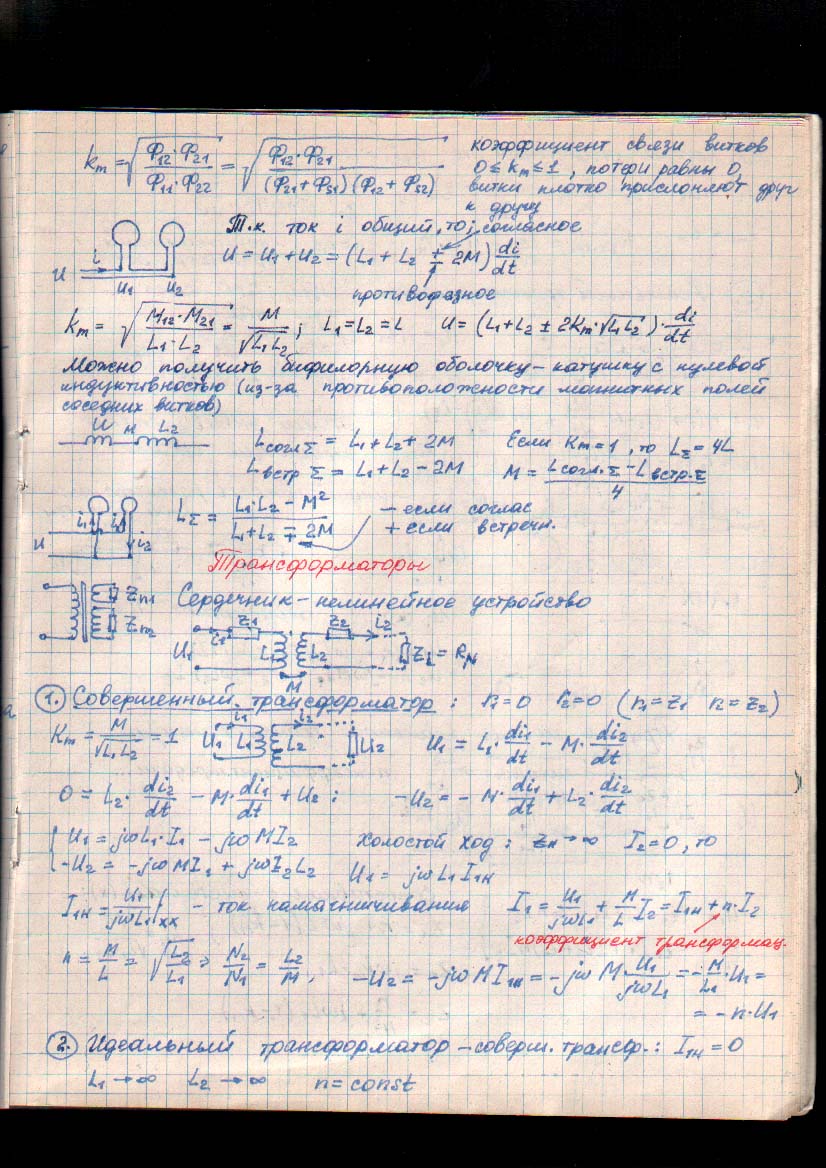 kₘ = √(Ф₁₂·Ф₂₁ / Ф₁₁·Ф₂₂) = √(Ф₁₂·Ф₂₁ / (Ф₂₁+Ф_S1)(Ф₁₂+Ф_S2))
коэффициент связи витков
0≤kₘ≤1, потери равны 0,
витки плотко прислоняют друг
к другу
Т.к. ток i общий, то: согласное
U = U₁+U₂ = (L₁+L₂ ± 2M) di/dt
противофазное
U i U₁ U₂
kₘ = √(M₁₂·M₂₁ / L₁·L₂) = M/√(L₁L₂); L₁=L₂=L U = (L₁+L₂ ± 2Kₘ·√(L₁L₂))·di/dt
Можно получить бифилярную оболочку-катушку с нулевой
индуктивностью (из-за противоположности магнитных полей
соседних витков)
M L₂
L согл Σ = L₁+L₂+2M Если Kₘ=1, то L_Σ=4L
L встр Σ = L₁+L₂−2M M = (L согл.Σ − L встр.Σ)/4
U i₁ i₂
L_Σ = (L₁·L₂ − M²)/(L₁+L₂ ∓ 2M) − если соглас
+ если встречн.
Трансформаторы
Zн₁
Zн₂
Сердечник-нелинейное устройство
U₁ i₁ Z₁ L₁ M L₂ Z₂ i₂ Z_L = Rн
1. Совершенный трансформатор: r₁=0 r₂=0 (r₁=Z₁ r₂=Z₂)
Kₘ = M/√(L₁L₂) = 1 U₁ i₁ L₁ L₂ i₂ U₂ U₁ = L₁·di₁/dt − M·di₂/dt
0 = L₂·di₂/dt − M·di₁/dt + U₂; −U₂ = −M·di₁/dt + L₂·di₂/dt
{ U₁ = jωL₁·I₁ − jωMI₂ Холостой ход: Zн→∞ I₂=0, то
−U₂ = −jωMI₁ + jωI₂L₂ U₁ = jωL₁I₁н
I₁н = U₁/jωL₁ |хх − ток намагничивания I₁ = U₁/jωL₁ + M/L I₂ = I₁н + n·I₂
коэффициент трансформац.
n = M/L = √(L₂/L₁) = N₂/N₁ = L₂/M, −U₂ = −jωMI₁н = −jωM·U₁/jωL₁ = −M/L₁·U₁ =
= −n·U₁
2. Идеальный трансформатор − соверш. трансф.: I₁н = 0
L₁→∞ L₂→∞ n = const